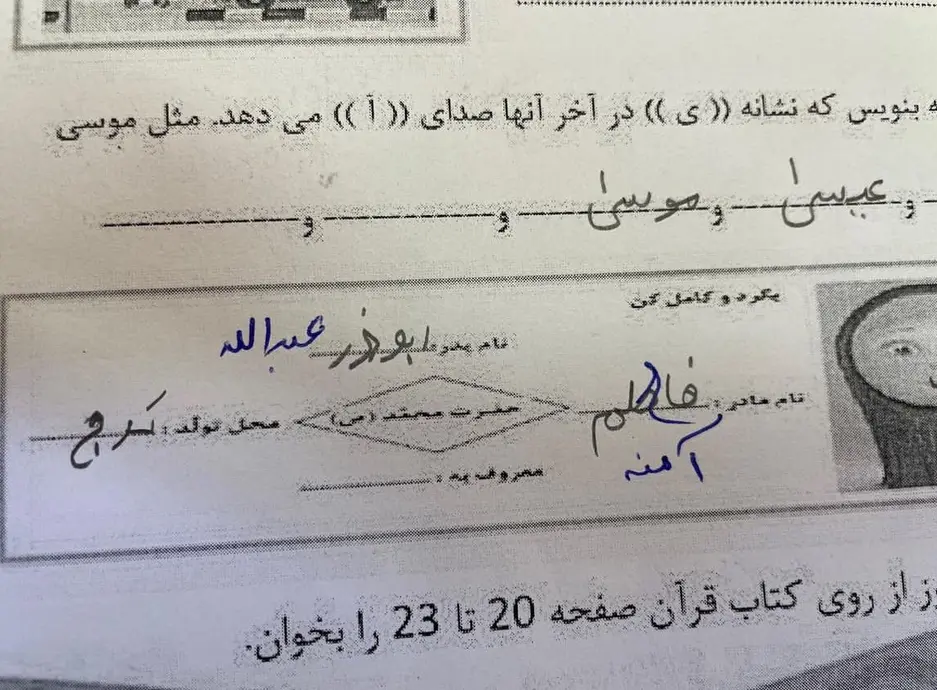 بنویس که نشانه (( ی )) در آخر آنها صدای (( آ )) می دهد. مثل موسی
و عیسی و موسی و و
بگرد و کامل کن
نام پدر: ابوذر عبدالله
نام مادر: فاطمه
حضرت محمد (ص)
محل تولد: کرج
آمنه
معروف به :
از روی کتاب قرآن صفحه 20 تا 23 را بخوان.